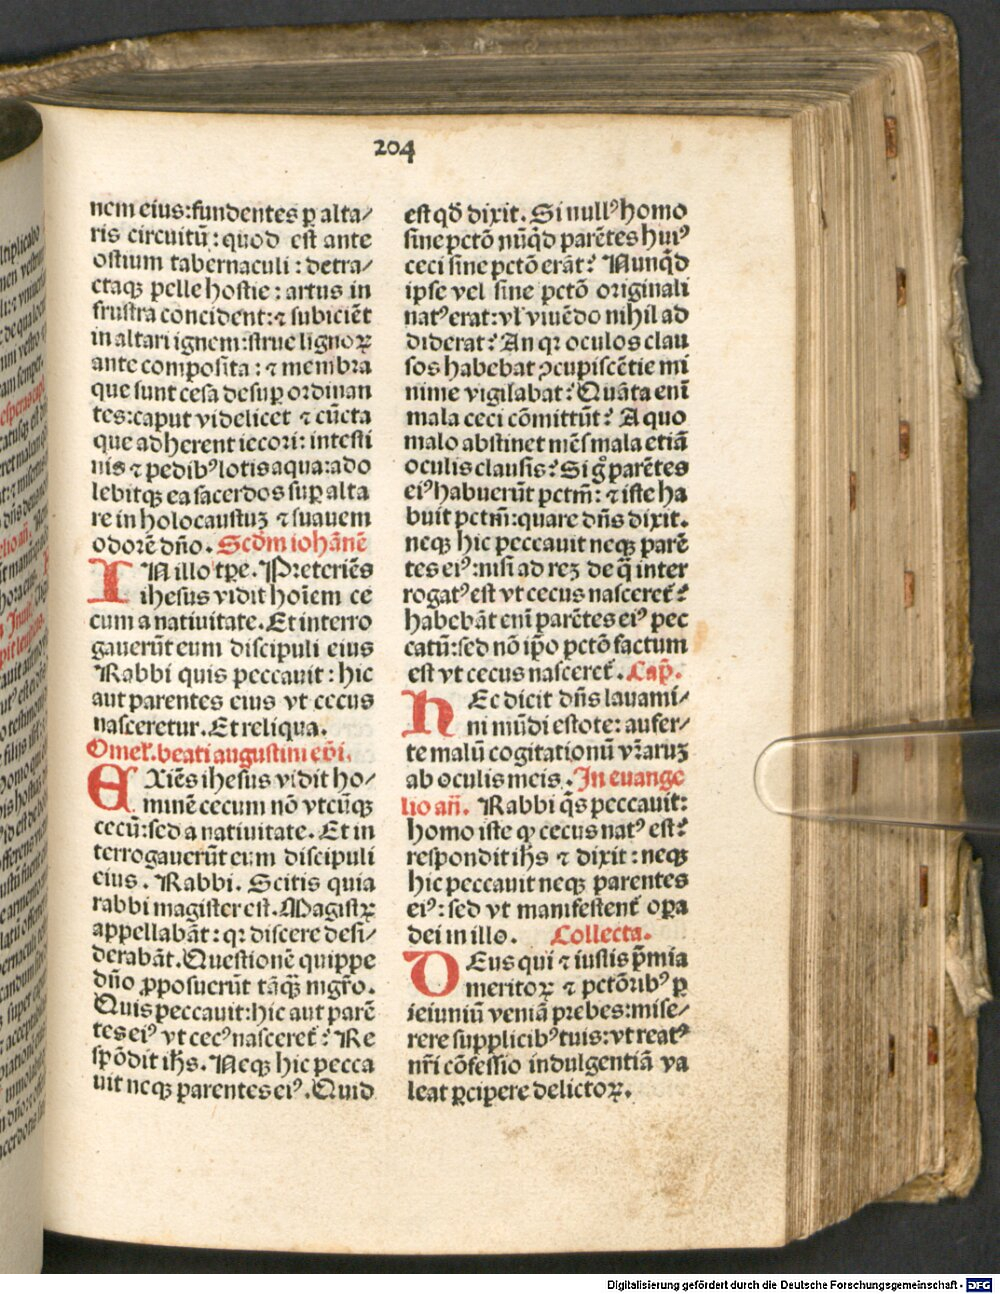 204
nem eius:fundentes ꝑ alta/
ris circuitū:quod est ante
ostium tabernaculi:detra/
ctaqꝫ pelle hostie:artus in
frustra concident:⁊ subiciēt
in altari ignem:strue lignoꝝ
ante composita:⁊ membra
que sunt cesa desuꝑ ordinan
tes:caput videlicet ⁊ cūcta
que adherent iecori:intesti
nis ⁊ pedibꝰ lotis aqua:ado
lebitqꝫ ea sacerdos suꝑ alta
re in holocaustuꝫ ⁊ suauem
odorē dño. Scdm iohānē
IN illo tꝑe. Preteriēs
ihesus vidit hoīem ce
cum a natiuitate. Et interro
gauerūt eum discipuli eius
Rabbi quis peccauit:hic
aut parentes eius vt cecus
nasceretur. Et reliqua.
Omeł. beati augustini ep̄i.
EXiēs ihesus vidit ho/
minē cecum nō vtcūqꝫ
cecū:sed a natiuitate. Et in
terrogauerūt eum discipuli
eius. Rabbi. Scitis quia
rabbi magister est. Magistꝝ
appellabāt:qꝛ discere desi/
derabāt. Questionē quippe
dño ꝓposuerūt tāqꝫ mgr̄o.
Quis peccauit:hic aut parē
tes eiꝰ vt cecꝰ nasceret̄? Re
spōdit ih̄s. Neqꝫ hic pecca
uit neqꝫ parentes eiꝰ. Quid
est qd̄ dixit. Si nullꝰ homo
sine pctō nūqd̄ parētes huiꝰ
ceci sine pctō erāt? Nunqd̄
ipse vel sine pctō originali
natꝰ erat:vl̄ viuēdo nihil ad
diderat? An qꝛ oculos clau
sos habebat ꝯcupiscētie mi
nime vigilabat? Quāta enī
mala ceci cōmittūt? A quo
malo abstinet mēs mala etiā
oculis clausis? Si g̊ parētes
eiꝰ habuerūt pctm̄:⁊ iste ha
buit pctm̄:quare dn̄s dixit.
neqꝫ hic peccauit neqꝫ parē
tes eiꝰ:nisi ad reꝫ de q̄ inter
rogatꝰ est vt cecus nasceret̄?
habebāt enī parētes eiꝰ pec
catū:sed nō ip̄o pctō factum
est vt cecus nasceret̄. Cap̄.
HEc dicit dn̄s lauami/
ni mūdi estote:aufer/
te malū cogitationū vr̄aruꝫ
ab oculis meis. In euange
lio añ. Rabbi q̄s peccauit:
homo iste ꝙ cecus natꝰ est?
respondit ih̄s ⁊ dixit:neqꝫ
hic peccauit neqꝫ parentes
eiꝰ:sed vt manifestent̄ oꝑa
dei in illo. Collecta.
DEus qui ⁊ iustis p̄mia
meritoꝝ ⁊ pctōribꝰ ꝑ
ieiuniū veniā prebes:mise/
rere supplicibꝰ tuis:vt reatꝰ
nr̄i cōfessio indulgentiā va
leat ꝑcipere delictoꝝ.
Digitalisierung gefördert durch die Deutsche Forschungsgemeinschaft - DFG